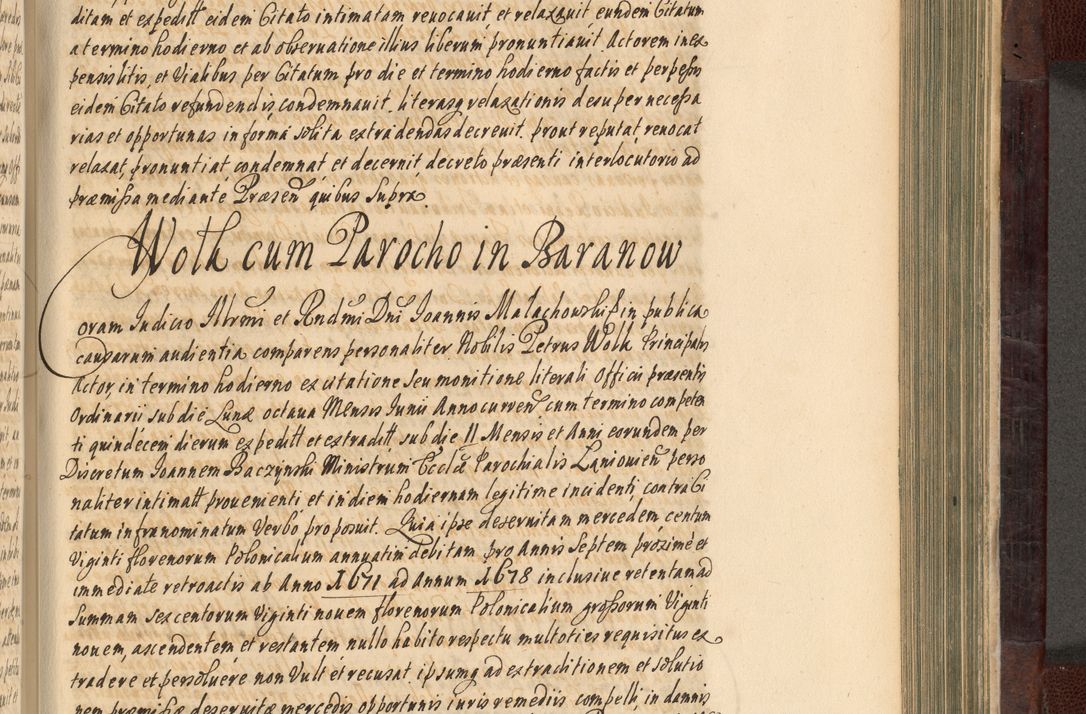 ditam et expeditt eidem Citato intimatam reuocauit et relaxauit eundem Citatum
a termino hodierno et ab obseruatione illius liberum pronuntiauit Actorem in ex
pensis litis, et Vialibus per Citatum pro die et termino hodierno factis et perpessis
eidem Citato refundendis condemnauit, literasq relaxationis desuper necessa
rias et opportunas in formá solita extradendas decreuit. prout reputat, reuocat
relaxat, pronuntiat, condemnat et decernit, decreto præsenti interlocutorio ad
præmissa mediante Præsen quibus Supra
Wolk cum Parocho in Baranow
Coram Judicio Illrmi et Rndmi Dni Joannis Małachowski in publica
causarum audientia comparens personaliter Nobilis Petrus Wolk Principalis
Actor, in termino hodierno ex citatione seu monitione literali Officii præsentis
Ordinarii sub die Lunæ octaua Mensis Junii Anno curren cum termino competen
ti quindecem dierum expeditt et extraditt sub die 11 Mensis et Anni eorundem per
Discretum Joannem Baczynski Ministrum Ecclæ Parochialis Zaniouien perso
naliter intimatt prouenienti et in diem hodiernam legitime incidenti contra Ci
tatum infranominatum Verbó proposuit. Quia ipse deseruitam mercedem centum
Viginti florenorum Polonicalium annuatim debitam pro Annis Septem proximé et
immediate retroactis ab Anno 1671 ad Annum 1678 inclusiue retentam ad
Summam sexcentorum Viginti nouem florenorum Polonicalium grossorum Viginti
nouem, ascendentem et restantem nullo habito respectu multoties requisitus ex
tradere et persoluere non Vult et recusat ipsumq ad extraditionem et solutio
nem præmissæ deseruitæ mercedis opportunis iuris remediis compelli, in damnis